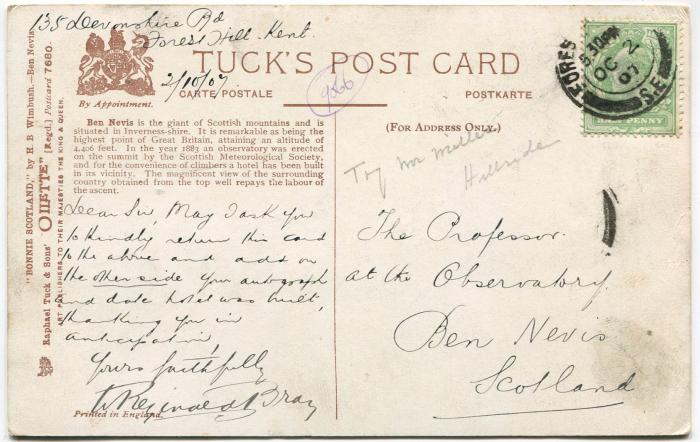 135 Devonshire Rd
Forest Hill. Kent.
2/10/07
By Appointment.
TUCK'S POST CARD
CARTE POSTALE
POSTKARTE
9866
(FOR ADDRESS ONLY.)
"BONNIE SCOTLAND," by H. B Wimbush.—Ben Nevis.
Raphael Tuck & Sons' "OILETTE" [Regd.] Postcard 7680.
ART PUBLISHERS TO THEIR MAJESTIES THE KING & QUEEN.
Ben Nevis is the giant of Scottish mountains and is
situated in Inverness-shire. It is remarkable as being the
highest point of Great Britain, attaining an altitude of
4,406 feet. In the year 1883 an observatory was erected
on the summit by the Scottish Meteorological Society,
and for the convenience of climbers a hotel has been built
in its vicinity. The magnificent view of the surrounding
country obtained from the top well repays the labour of
the ascent.
Dear Sir, May I ask you
to kindly return this card
to the above and add on
the other side your autograph
and date hotel was built,
thanking you in
anticipation,
Yours faithfully
W Reginald Bray
Printed in England.
5.30PM
OC 2
07
S.E.
HALFPENNY
Try
Hillside
The Professor.
at the Observatory.
Ben Nevis
Scotland